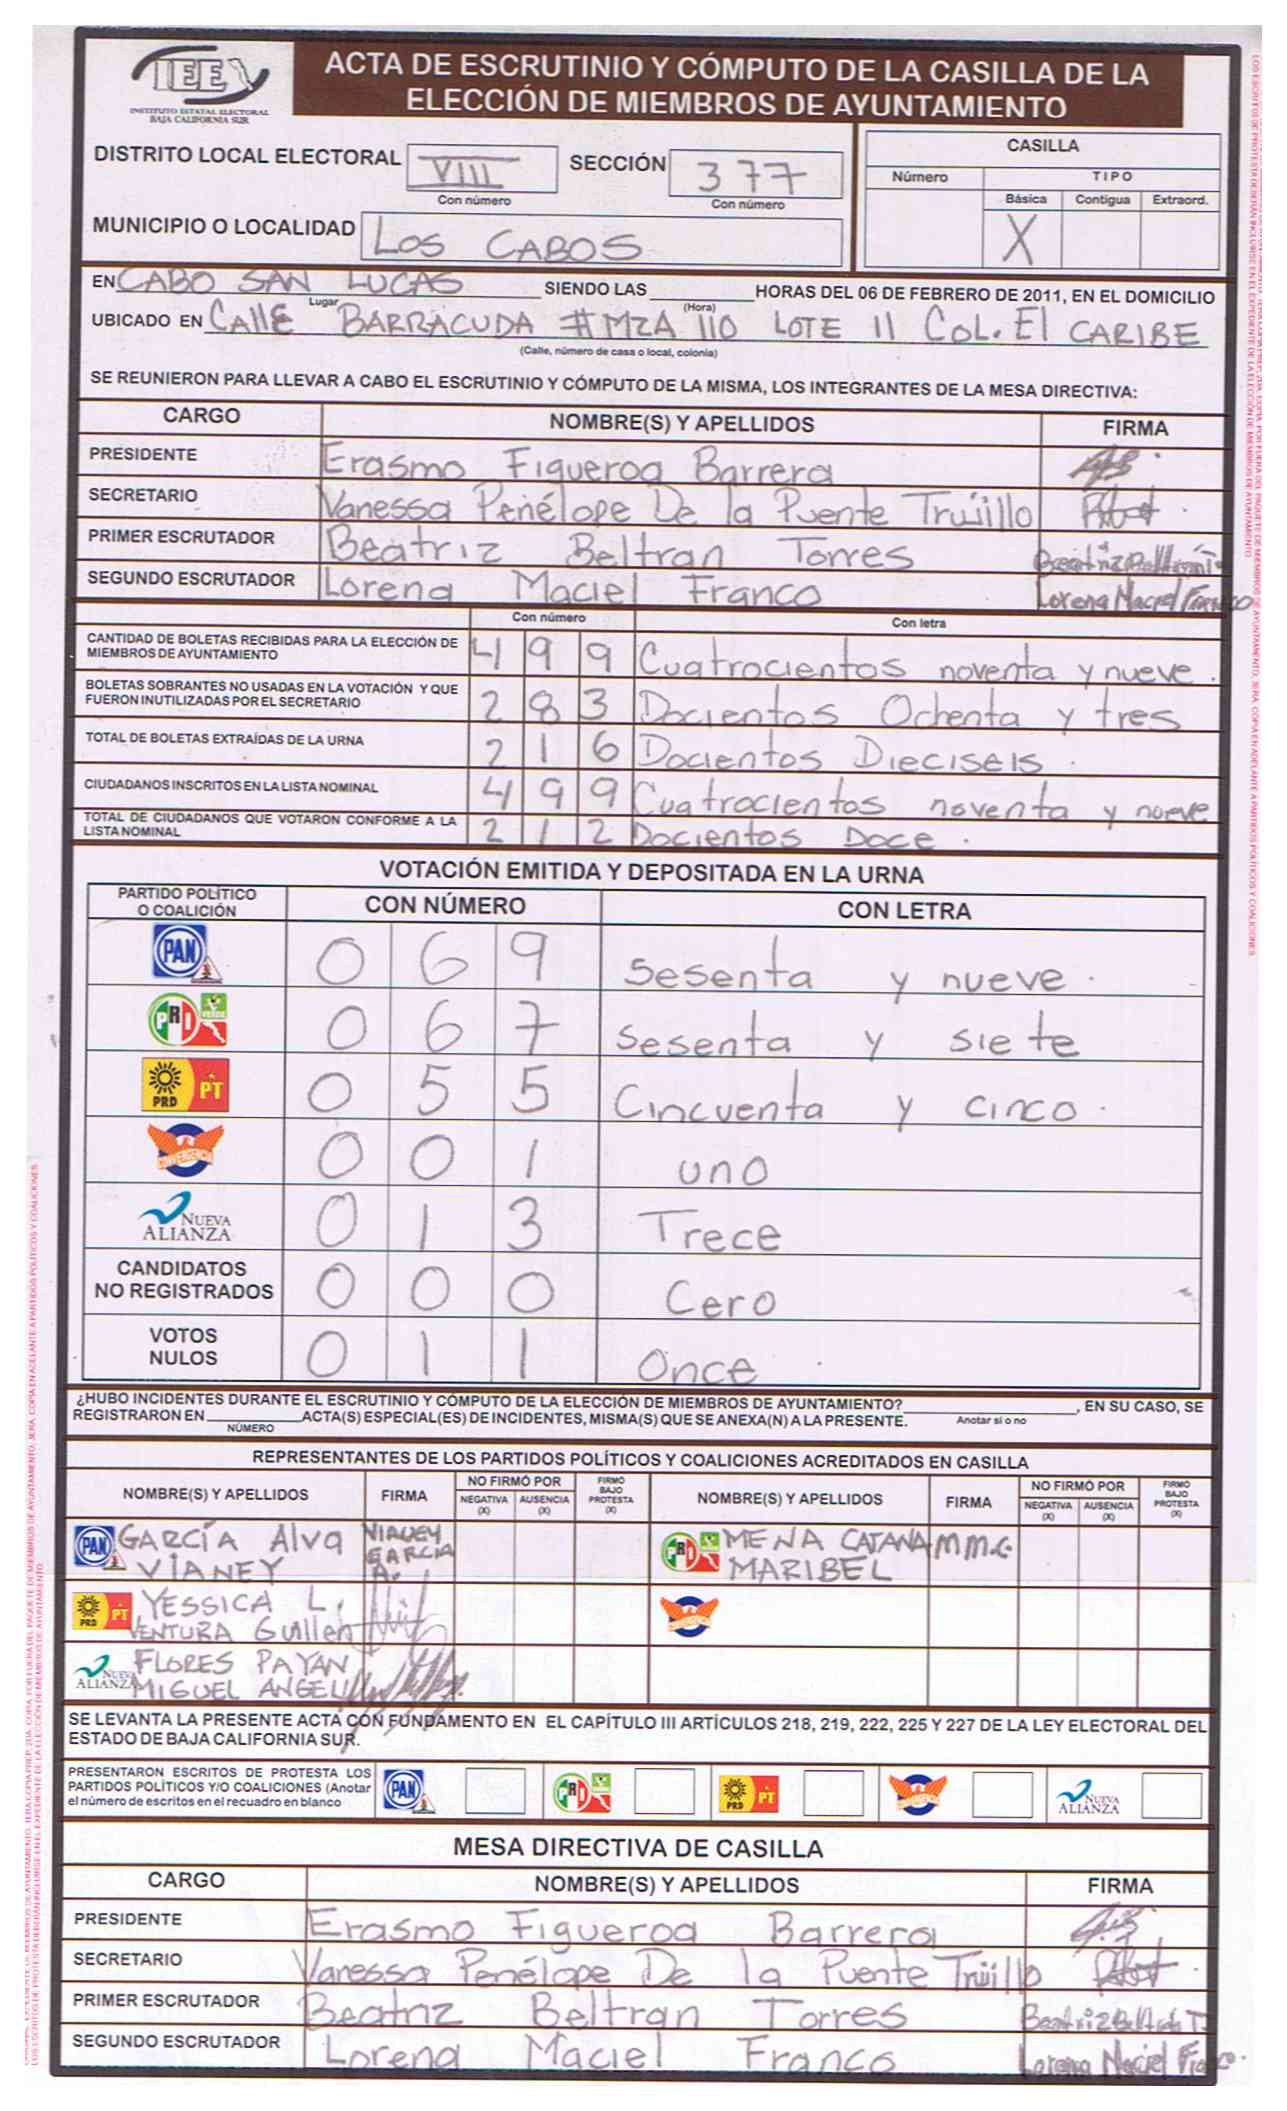 IEE
INSTITUTO ESTATAL ELECTORAL
BAJA CALIFORNIA SUR
ACTA DE ESCRUTINIO Y CÓMPUTO DE LA CASILLA DE LA
ELECCIÓN DE MIEMBROS DE AYUNTAMIENTO
DISTRITO LOCAL ELECTORAL VIII SECCIÓN 377
Con número Con número
MUNICIPIO O LOCALIDAD LOS CABOS
CASILLA
Número TIPO
Básica Contigua Extraord.
X
EN CABO SAN LUCAS SIENDO LAS HORAS DEL 06 DE FEBRERO DE 2011, EN EL DOMICILIO
Lugar (Hora)
UBICADO EN CALLE BARRACUDA #MZA 110 LOTE 11 COL. El CARIBE
(Calle, número de casa o local, colonia)
SE REUNIERON PARA LLEVAR A CABO EL ESCRUTINIO Y CÓMPUTO DE LA MISMA, LOS INTEGRANTES DE LA MESA DIRECTIVA:
CARGO NOMBRE(S) Y APELLIDOS FIRMA
PRESIDENTE Erasmo Figueroa Barrera
SECRETARIO Vanessa Penélope De la Puente Trujillo
PRIMER ESCRUTADOR Beatriz Beltran Torres Beatriz Beltran T
SEGUNDO ESCRUTADOR Lorena Maciel Franco Lorena Maciel Franco
Con número Con letra
CANTIDAD DE BOLETAS RECIBIDAS PARA LA ELECCIÓN DE
MIEMBROS DE AYUNTAMIENTO 4 9 9 Cuatrocientos noventa y nueve.
BOLETAS SOBRANTES NO USADAS EN LA VOTACIÓN Y QUE
FUERON INUTILIZADAS POR EL SECRETARIO 2 8 3 Docientos Ochenta y tres
TOTAL DE BOLETAS EXTRAÍDAS DE LA URNA 2 1 6 Docientos Dieciseis.
CIUDADANOS INSCRITOS EN LA LISTA NOMINAL 4 9 9 Cuatrocientos noventa y nueve
TOTAL DE CIUDADANOS QUE VOTARON CONFORME A LA
LISTA NOMINAL 2 1 2 Docientos Doce.
VOTACIÓN EMITIDA Y DEPOSITADA EN LA URNA
PARTIDO POLÍTICO
O COALICIÓN CON NÚMERO CON LETRA
PAN 0 6 9 Sesenta y nueve.
PRI VERDE 0 6 7 Sesenta y siete
PRD PT 0 5 5 Cincuenta y cinco.
CONVERGENCIA 0 0 1 uno
NUEVA ALIANZA 0 1 3 Trece
CANDIDATOS
NO REGISTRADOS 0 0 0 Cero
VOTOS
NULOS 0 1 1 Once
¿HUBO INCIDENTES DURANTE EL ESCRUTINIO Y CÓMPUTO DE LA ELECCIÓN DE MIEMBROS DE AYUNTAMIENTO? , EN SU CASO, SE
REGISTRARON EN ACTA(S) ESPECIAL(ES) DE INCIDENTES, MISMA(S) QUE SE ANEXA(N) A LA PRESENTE. Anotar si o no
NÚMERO
REPRESENTANTES DE LOS PARTIDOS POLÍTICOS Y COALICIONES ACREDITADOS EN CASILLA
NOMBRE(S) Y APELLIDOS FIRMA NO FIRMÓ POR NEGATIVA (X) AUSENCIA (X) FIRMÓ BAJO PROTESTA (X) NOMBRE(S) Y APELLIDOS FIRMA NO FIRMÓ POR NEGATIVA (X) AUSENCIA (X) FIRMÓ BAJO PROTESTA (X)
PAN GARCÍA Alva VIANEY PRI MENA CATANA M.M.C
VIANEY GARCIA A. MARIBEL
PRD PT YESSICA L.
VENTURA Guillen
NUEVA ALIANZA FLORES PAYAN
MIGUEL ANGEL
SE LEVANTA LA PRESENTE ACTA CON FUNDAMENTO EN EL CAPÍTULO III ARTÍCULOS 218, 219, 222, 225 Y 227 DE LA LEY ELECTORAL DEL
ESTADO DE BAJA CALIFORNIA SUR.
PRESENTARON ESCRITOS DE PROTESTA LOS
PARTIDOS POLÍTICOS Y/O COALICIONES (Anotar
el número de escritos en el recuadro en blanco
PAN PRI PRD PT CONVERGENCIA NUEVA ALIANZA
MESA DIRECTIVA DE CASILLA
CARGO NOMBRE(S) Y APELLIDOS FIRMA
PRESIDENTE Erasmo Figueroa Barrera
SECRETARIO Vanessa Penélope De la Puente Trujillo
PRIMER ESCRUTADOR Beatriz Beltran Torres Beatriz Beltran T.
SEGUNDO ESCRUTADOR Lorena Maciel Franco Lorena Maciel Franco